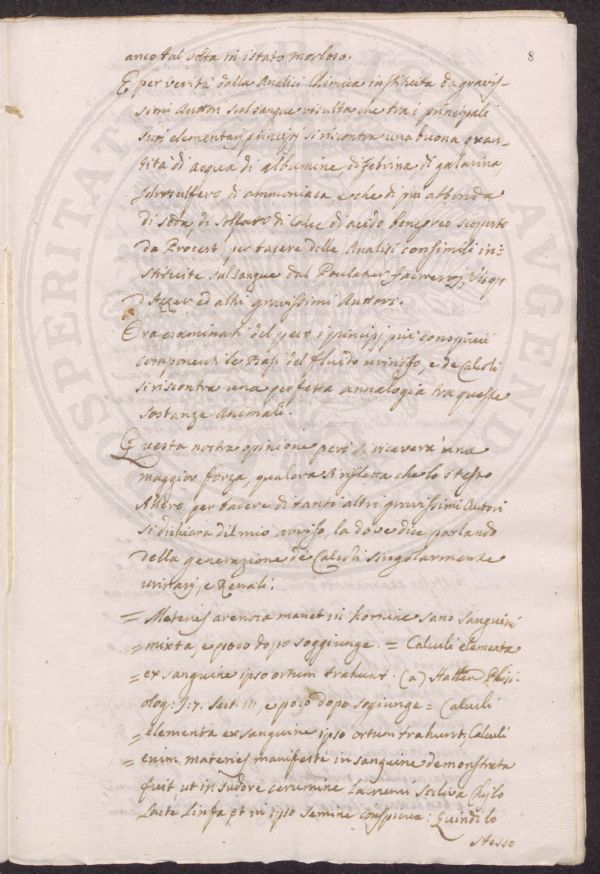 8
anco tal volta in istato morboso.
E per verità dalla Analisi Chimica instituita da gravis-
simi Auttori sul sangue risulta che tra i principali
suoi elementari principj si riscontra una buona quan-
tità di acqua di albumine di febrina di gelatina,
di ammoniaca e che di più abbonda
di soda, di solfato di calce di acido benzoico scoperto
da Proust, per tacere delle Analisi consimili in-
stituite sul sangue dal
ed altri gravissimi Auttori.
Ora esaminati del pari i principj più conspicui
componenti le Basi del fluido urinoso, e de Calcoli
si riscontra una perfetta annalogia tra queste
sostanze Animali.
Questa nostra opinione però si riceverà una
maggior forza, qualora si rifletta che lo stesso
Allero, per tacere di tanti altri gravissimi Autori
si dichiara del mio avviso, la dove dice parlando
della generazione de Calcoli singolarmente
urinarj, e Renali.
= Materies arenosa manet in homine sano sanguini
= mixta, e poco dopo soggiunge. = Calculi elementa
= ex sanguine ipso ortum trahunt. (a) Haller Phisi-
olog: Sect: III, e poco dopo sogiunge = Calculi
= elementa ex sanguine ipso ortum trahunt. Calculi
= enim materies manifeste in sanguine demonstrata
fuit ut in sudore cerumine Lacrimis saliva Chylo
Lacte Linfa et in ipso semine conspicua: Quindi lo
stesso
PROSPERITATI AUGENDAE